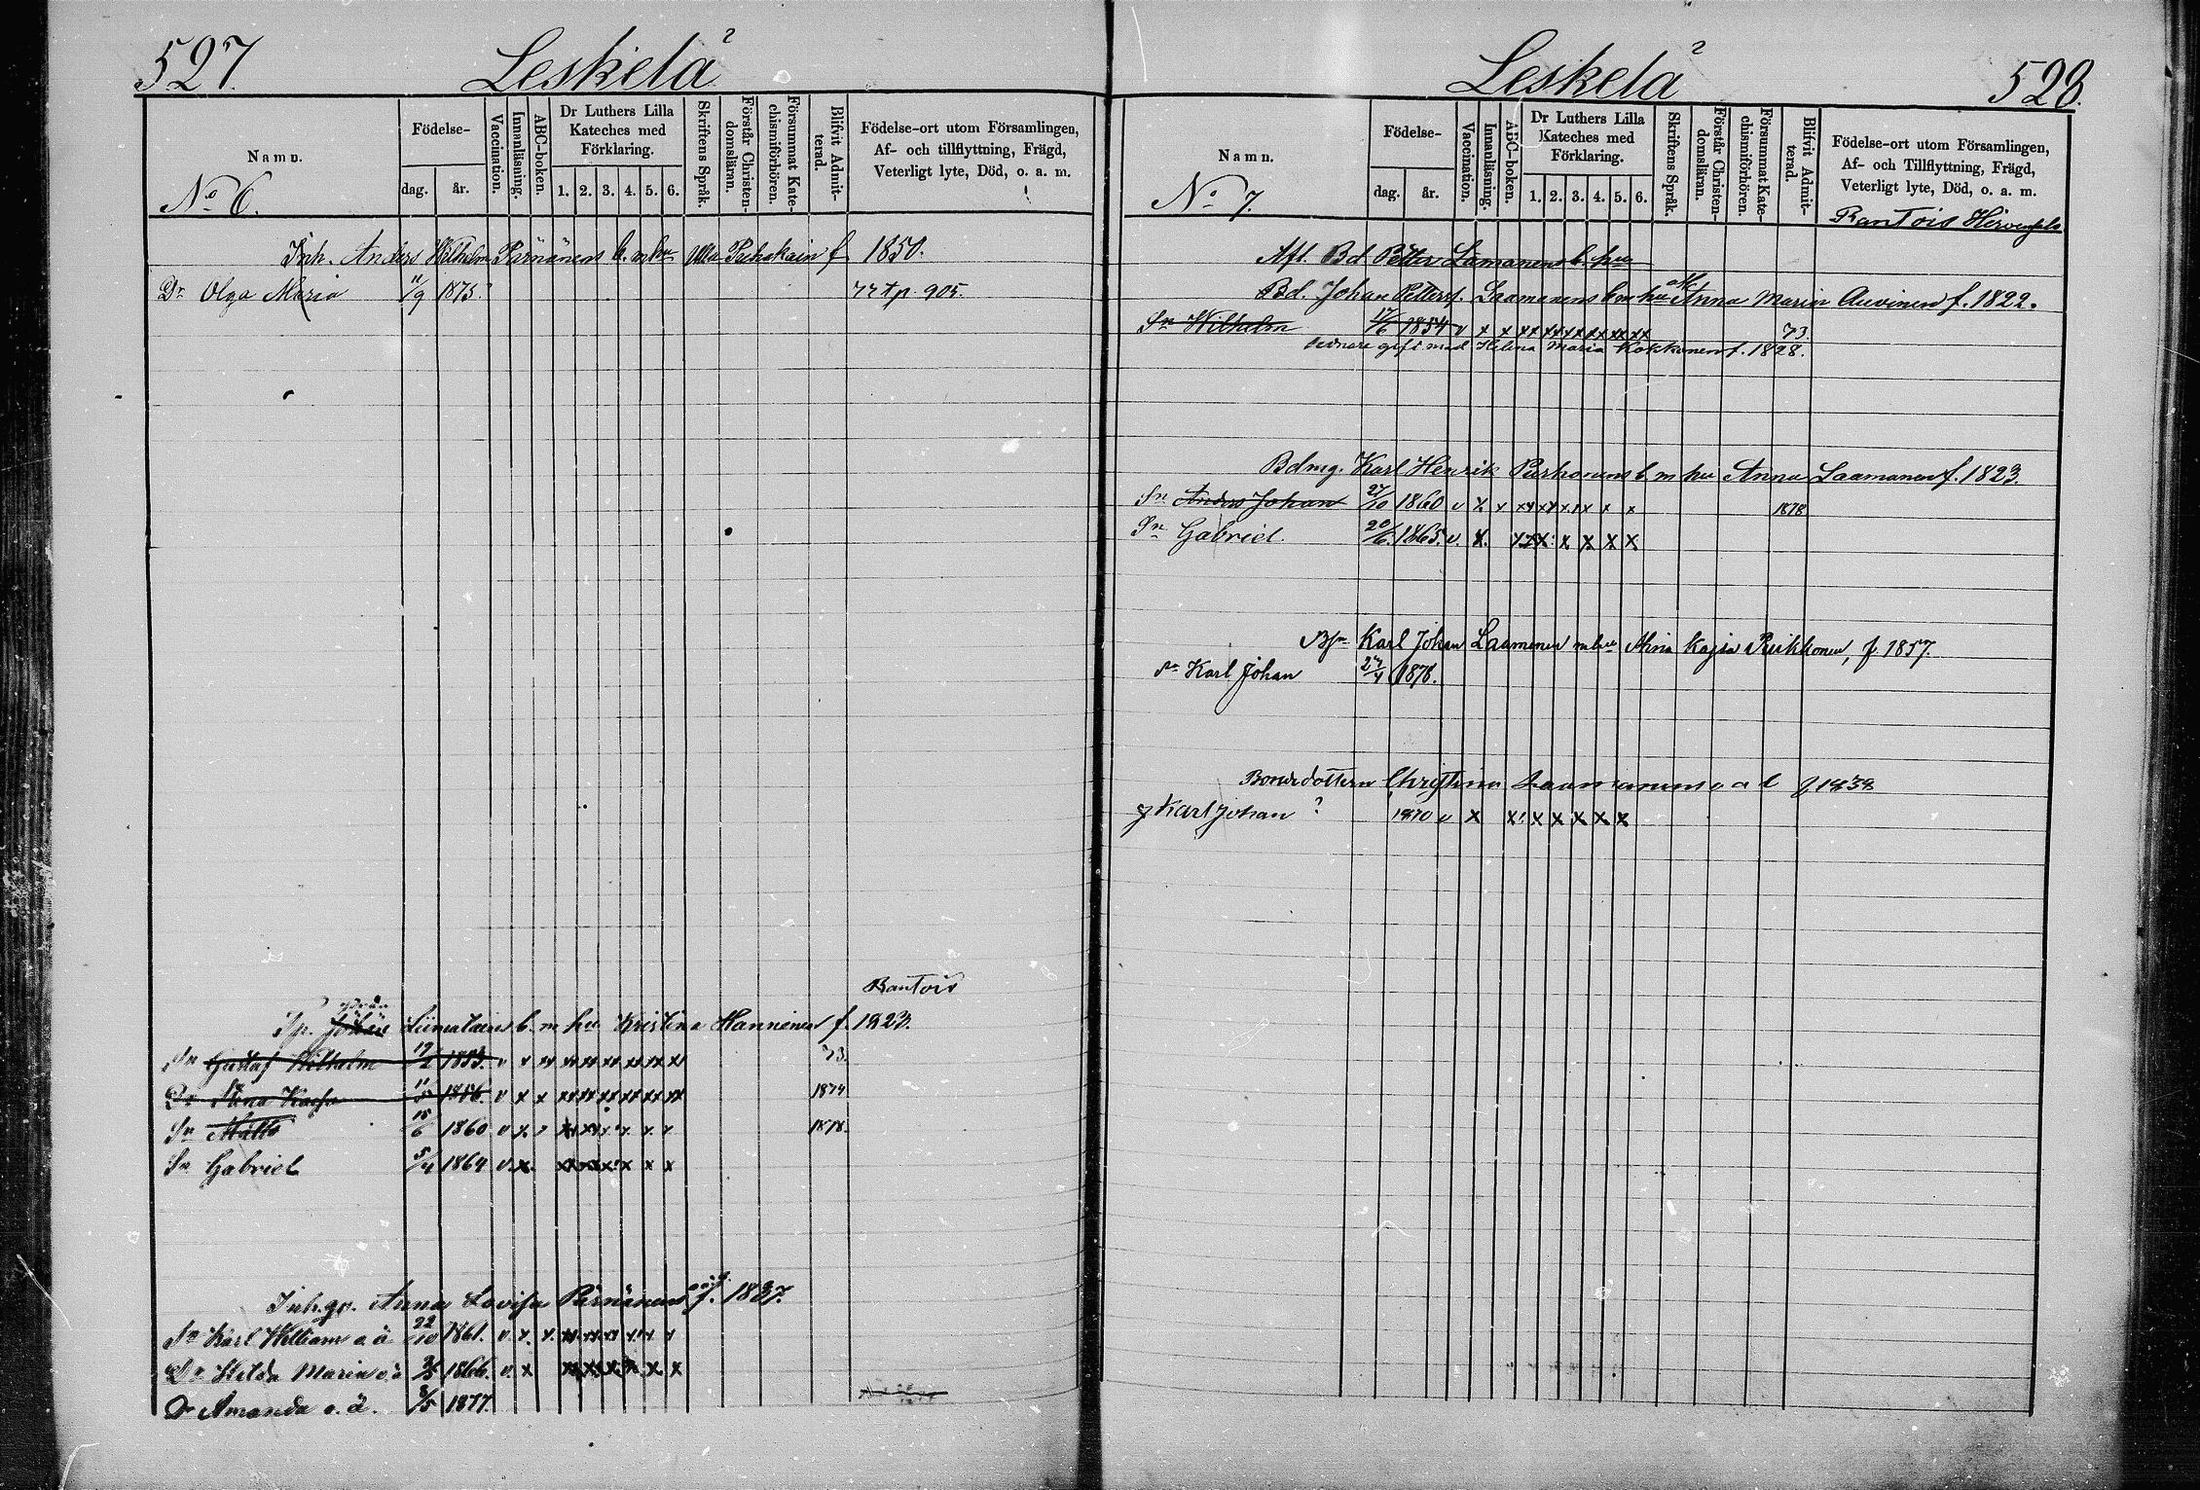 527.
Leskelä
Namn.
Födelse-
dag.
år.
Vaccination.
Innanläsning.
ABC-boken.
Dr Luthers Lilla
Kateches med
Förklaring.
1. 2. 3. 4. 5. 6.
Skriftens Språk.
Förstår Christen-
domsläran.
Försummat Kate-
chismiförhören.
Blifvit Admit-
terad.
Födelse-ort utom Församlingen,
Af- och tillflyttning, Frägd,
Veterligt lyte, Död, o. a. m.
No 6.
Inh. Anders Wilhelm Pärnänens b. m hu Ulla f 1850.
Dr Olga Maria 11/9 1875. 77 tp. 905.
Rantois
Johan Liimatainens b. m hu Kristina Hänninen f. 1823.
Sn Gustaf Wilhelm 1853. v x xx xx xx xx xx xx xx 73.
Dr Anna Kajsa 11/5 1856. v x x xx xx xx xx xx xx 1874
Sn Matts 15/6 1860 v x 1878.
Sn Gabriel 5/4 1864 v x
Inh. Anna Lovisa Pärnänens f. 1837.
Sn Karl William o. ä 22/10 1861. v. x. x.
Dr Hilda Maria o. ä 1866. v x
Dr Amanda o. ä. 1877.
Leskelä
528.
Namn.
Födelse-
dag.
år.
Vaccination.
Innanläsning.
ABC-boken.
Dr Luthers Lilla
Kateches med
Förklaring.
1. 2. 3. 4. 5. 6.
Skriftens Språk.
Förstår Christen-
domsläran.
Försummat Kate-
chismiförhören.
Blifvit Admit-
terad.
Födelse-ort utom Församlingen,
Af- och Tillflyttning, Frägd,
Veterligt lyte, Död, o. a. m.
No 7.
Rantois
Afl. Bd Petter Lamanens b. hu
Bd. Johan Petterss. Laamanens b m hu Anna Maria Auvinen f. 1822.
Sn Wilhelm 17/6 1854 v x x xx xx xx xx xx xx 73.
Sednare gift med Helena Maria Kokkonen f. 1828.
Bdmg. Karl Henrik Purhonens b m hu Anna Laamanen f. 1823.
Sn Anders Johan 27/10 1860 v x x 1878
Sn Gabriel. 20/6. 1865. v. x.
Karl Johan Laamanen m hu Mina Kajsa Pirkkonen, f. 1857.
Sn Karl Johan 27/4 1878.
Bondedottern Christina Laamanens o a b f 1838
g Karl Johan ? 1870 v x x! x x x x x